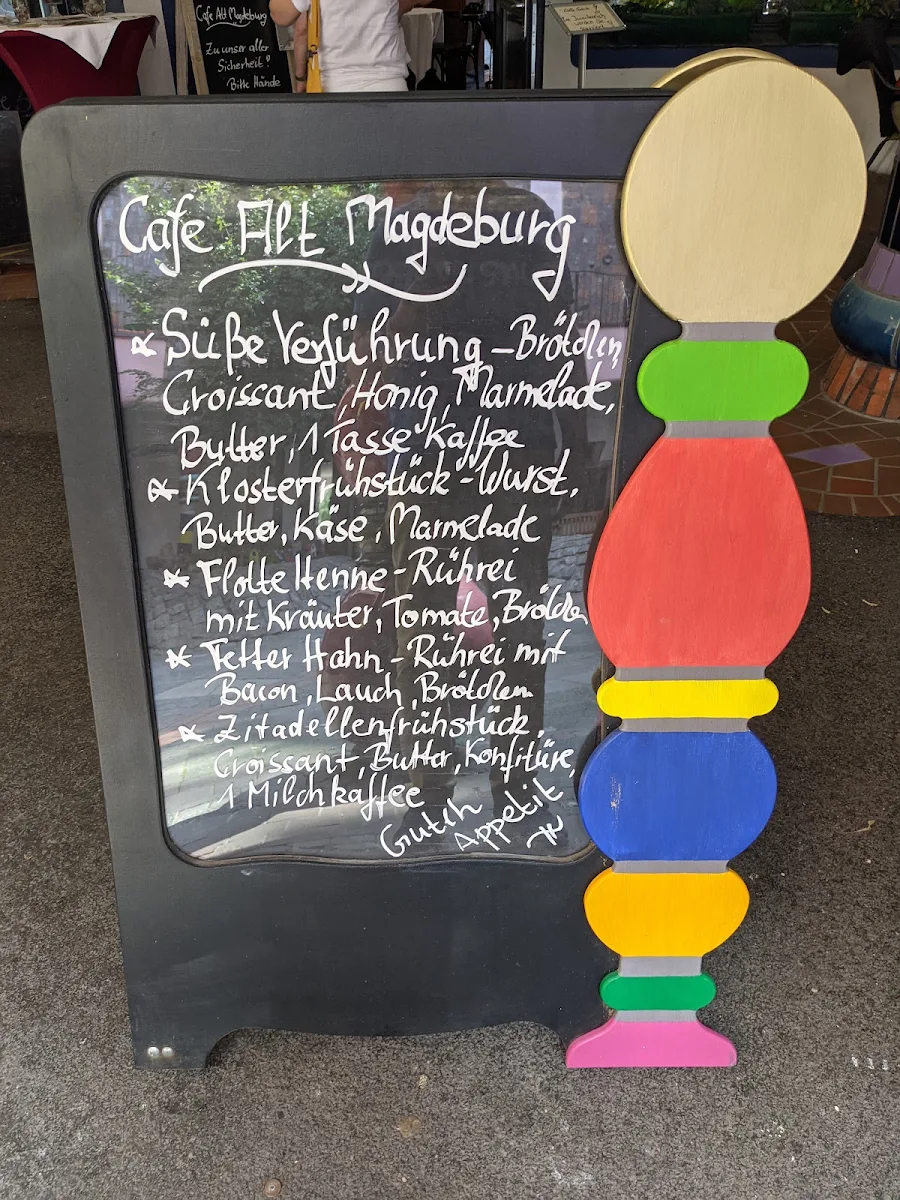 Cafe Alt Magdeburg
Zu unser aller
Sicherheit!
Bitte Hände
Cafe Alt Magdeburg
Süße Verführung – Brötchen
Croissant, Honig, Marmelade,
Butter, 1 Tasse Kaffee
Klosterfrühstück - Wurst,
Butter, Käse, Marmelade
Flotte Henne - Rührei
mit Kräuter, Tomate, Brötchen
Fetter Hahn - Rührei mit
Bacon, Lauch, Brötchen
Zitadellenfrühstück,
Croissant, Butter, Konfitüre,
1 Milchkaffee
Guten
Appetit